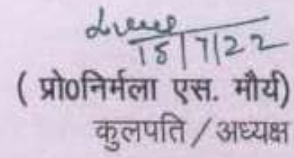 15/7/22
( प्रो0निर्मला एस. मौर्य)
कुलपति / अध्यक्ष